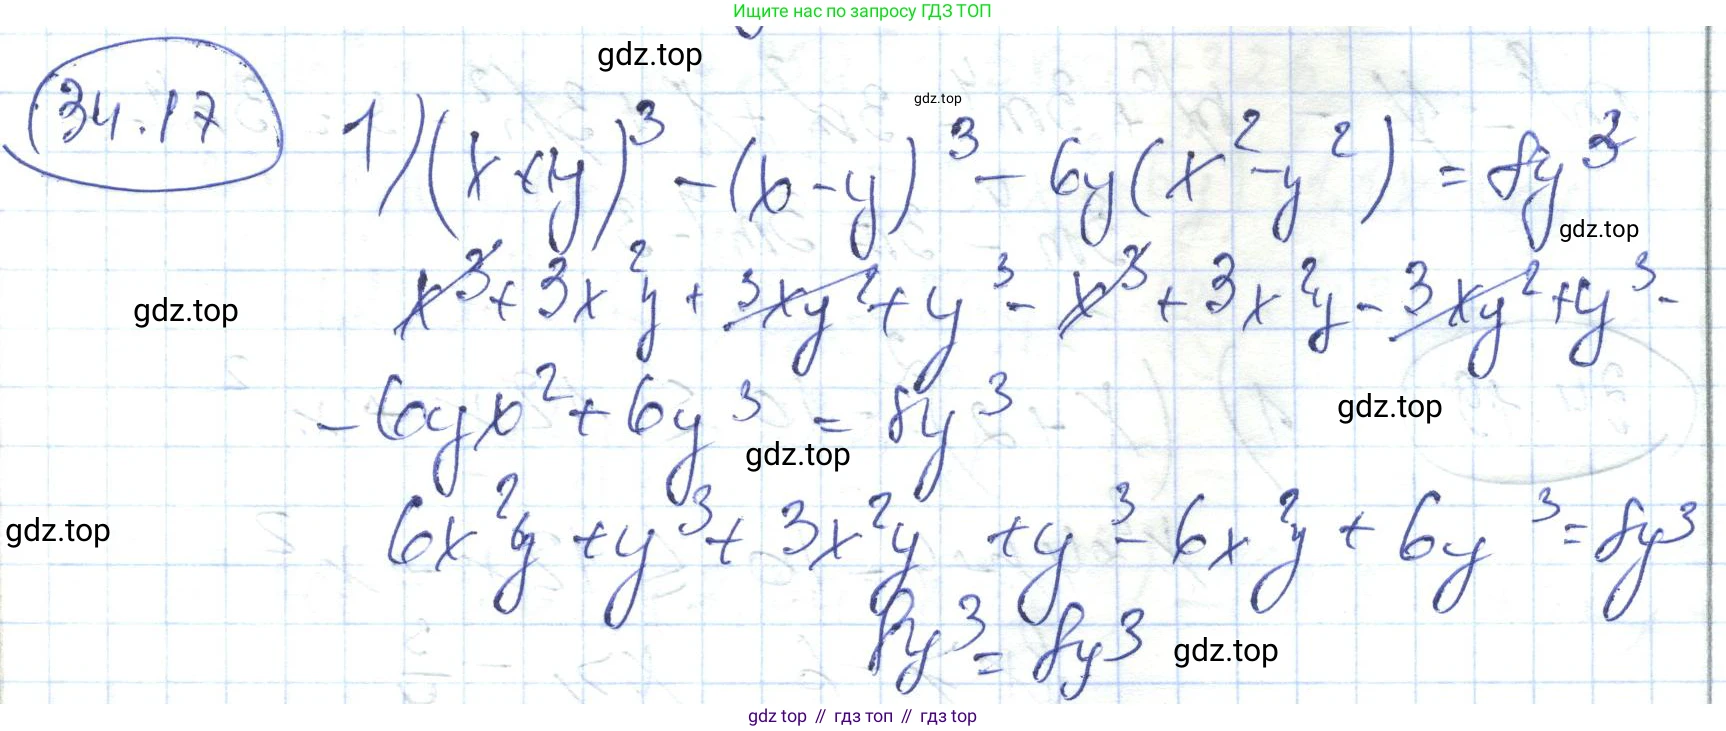 Ищите нас по запросу ГДЗ ТОП
gdz.top
gdz.top
34.17 1) (x+y)³ - (x-y)³ - 6y(x²-y²) = 8y³
gdz.top
gdz.top
x³ + 3x²y + 3xy² + y³ - x³ + 3x²y - 3xy² + y³ -
- 6yx² + 6y³ = 8y³
gdz.top
gdz.top
gdz.top
6x²y + y³ + 3x²y + y³ - 6x²y + 6y³ = 8y³
8y³ = 8y³
gdz.top
gdz top // гдз топ // gdz top